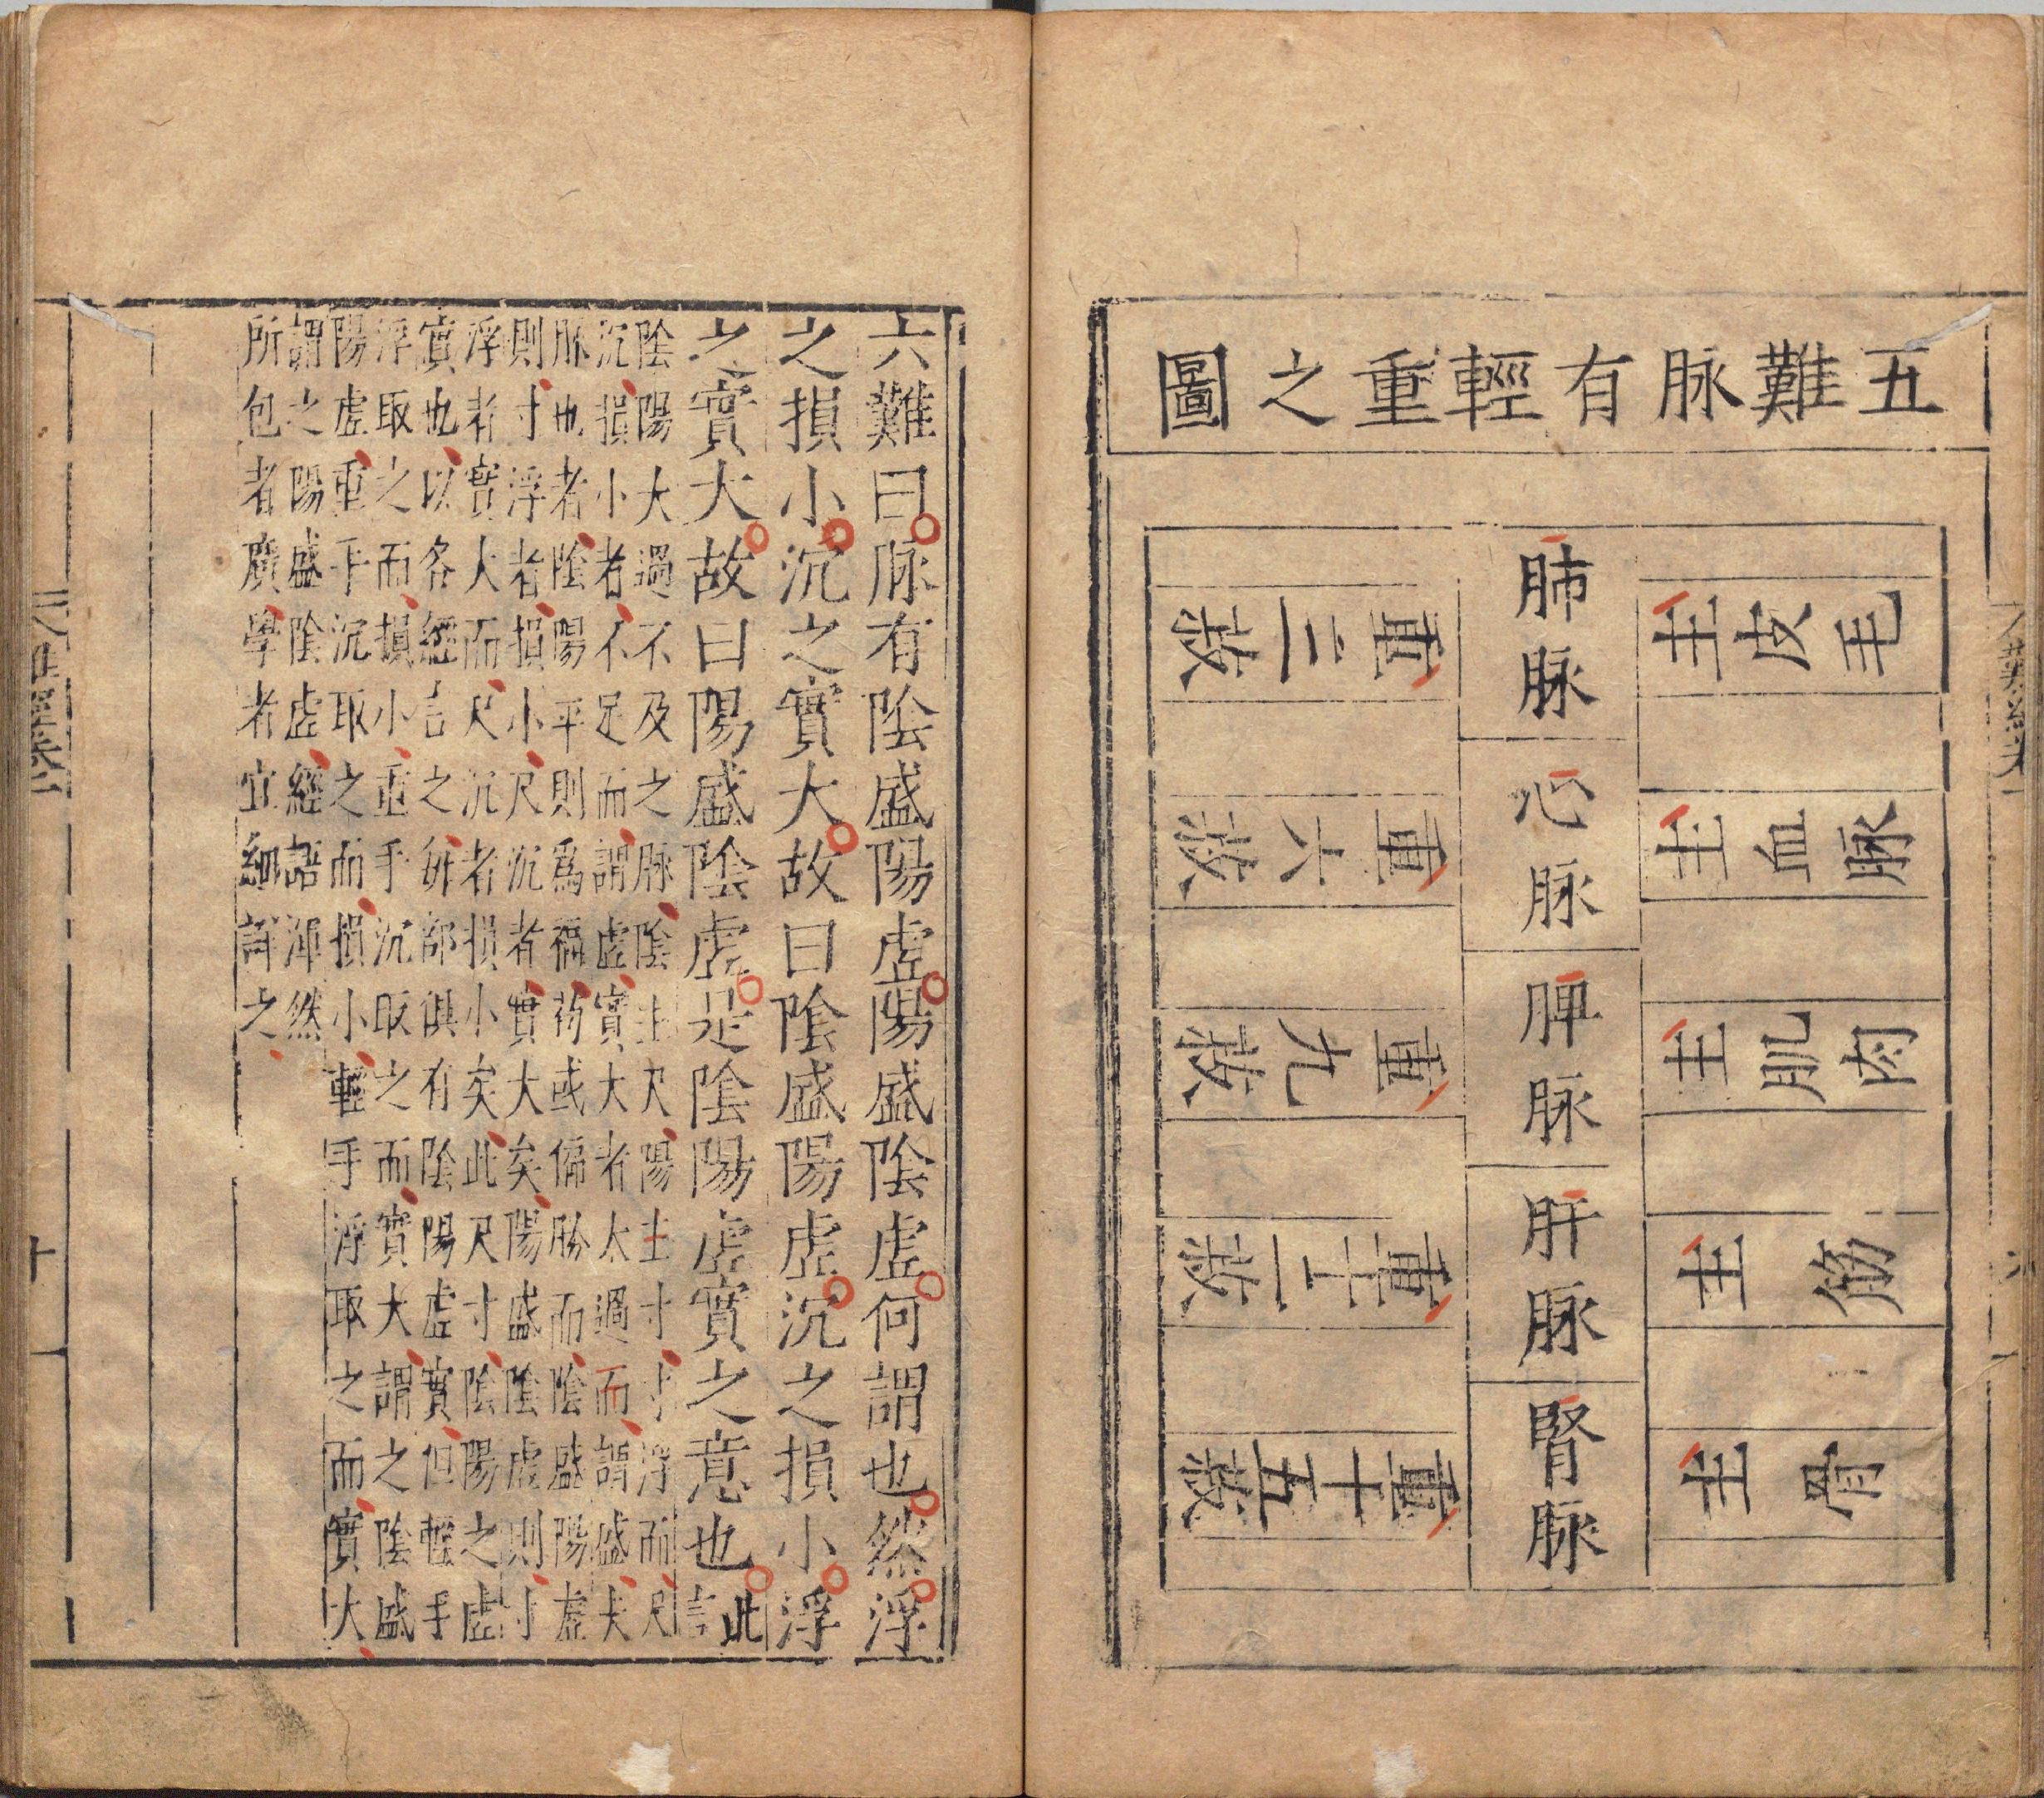 五難脉有輕重之圖
肺脉
主皮毛
重三菽
心脉
主血脉
重六菽
脾脉
主肌肉
重九菽
肝脉
主筋
重十二菽
腎脉
主骨
重十五菽
六難曰脉有陰盛陽虛陽盛陰虛何謂也然浮
之損小沉之實大故曰陰盛陽虛沉之損小浮
之實大故曰陽盛陰虛是陰陽虛實之意也此言
陰陽大過不及之脉陰主尺陽主寸寸浮而尺
沉損小者不足而謂虛實大者太過而謂盛夫
脉也者陰陽平則爲福茍或偏勝而陰盛陽虛
則寸浮者損小尺沉者實大矣陽盛陰虛則寸
浮者實大而尺沉者損小矣此尺寸陰陽之虛
實也以各經言之所部俱有陰陽虛實但輕手
浮取之而損小重手沉取之而實大謂之陰盛
陽虛重手沉取之而損小輕手浮取之而實大
謂之陽盛陰虛經語渾然
所包者廣學者宜細詳之
十一